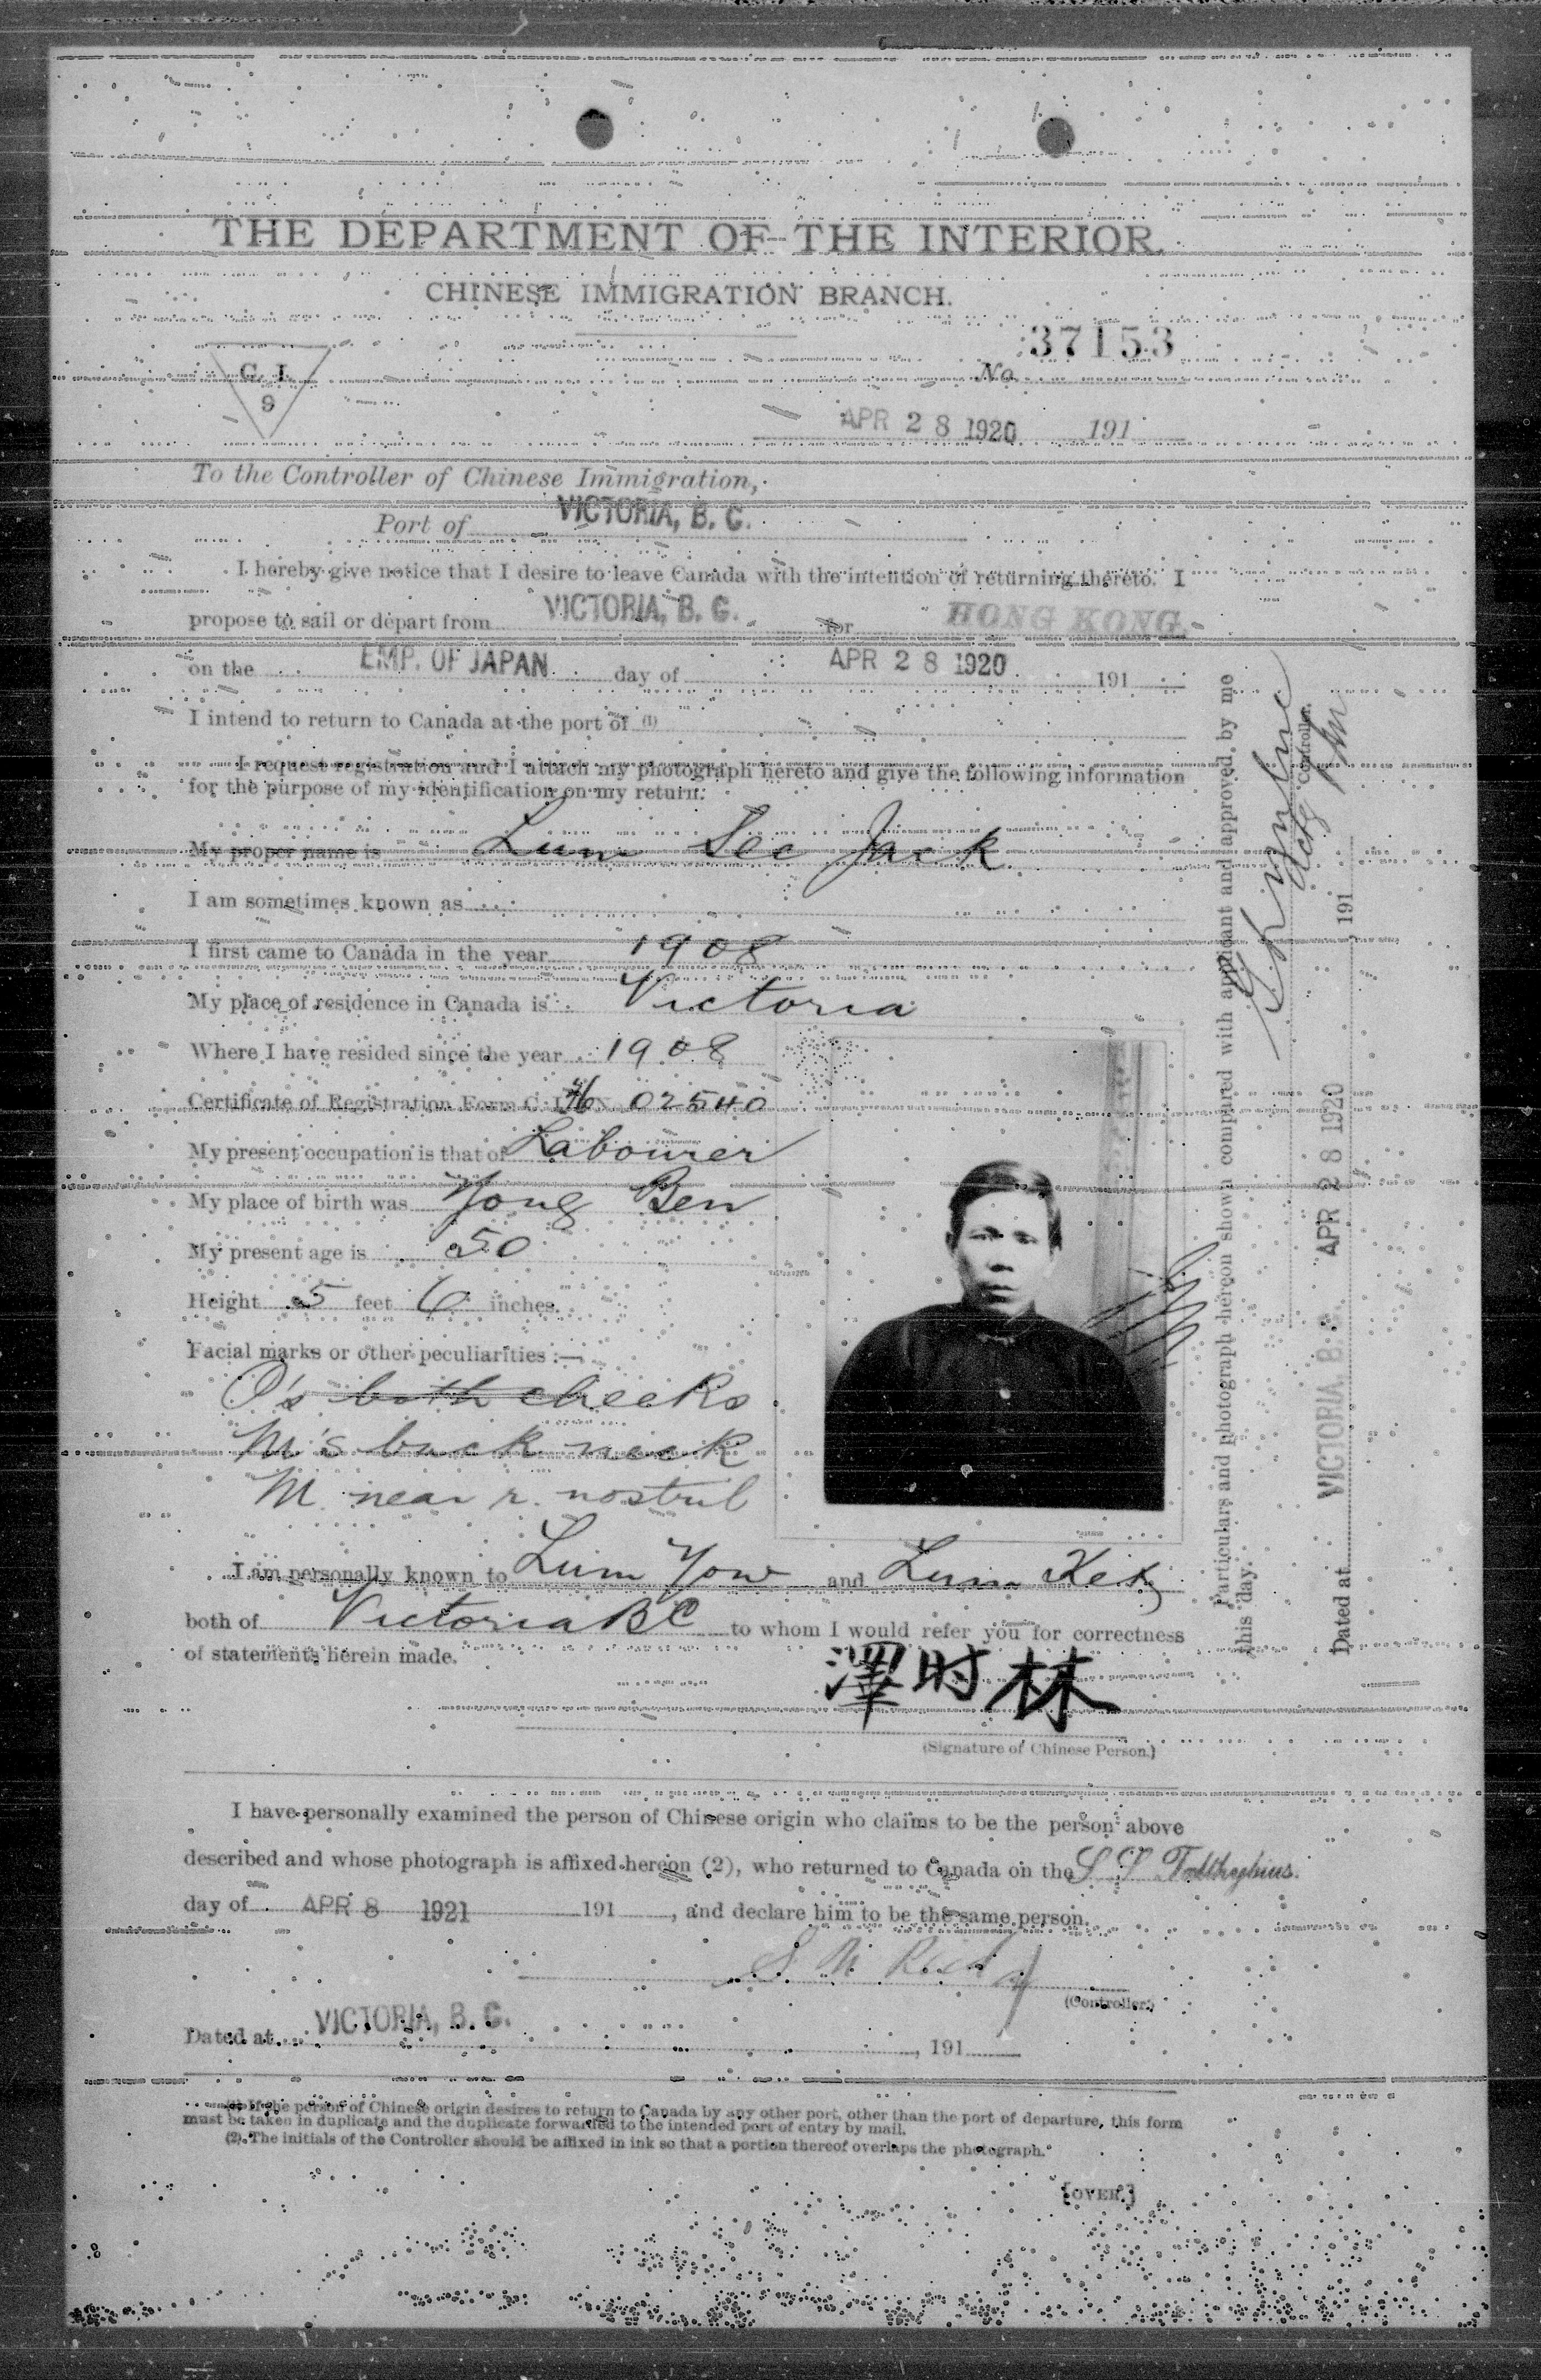 THE DEPARTMENT OF THE INTERIOR.
CHINESE IMMIGRATION BRANCH.
37153
No.
C. I.
9
APR 28 1920 191
To the Controller of Chinese Immigration,
Port of VICTORIA, B. C.
I hereby give notice that I desire to leave Canada with the intention of returning thereto. I
propose to sail or depart from VICTORIA, B. C. for HONG KONG
on the EMP. OF JAPAN day of APR 28 1920 191
I intend to return to Canada at the port of (1)
I request registration and I attach my photograph hereto and give the following information
for the purpose of my identification on my return:
My proper name is Lum See Jack
I am sometimes known as
I first came to Canada in the year 1908
My place of residence in Canada is Victoria
Where I have resided since the year 1908
Certificate of Registration Form C. I. 02540
My present occupation is that of Labourer
My place of birth was Yong Ben
My present age is 50
Height 5 feet 6 inches.
Facial marks or other peculiarities :—
O's both cheeks
M's back neck
M near r. nostril
I am personally known to Lum Yow and Lum
both of Victoria BC to whom I would refer you for correctness
of statements herein made.
澤时林
(Signature of Chinese Person.)
I have personally examined the person of Chinese origin who claims to be the person above
described and whose photograph is affixed hereon (2), who returned to Canada on the S S Talthybius.
day of APR 8 1921 191 , and declare him to be the same person.
(Controller.)
Dated at VICTORIA, B. C. , 191
(1) If the person of Chinese origin desires to return to Canada by any other port, other than the port of departure, this form
must be taken in duplicate and the duplicate forwarded to the intended port of entry by mail.
(2). The initials of the Controller should be affixed in ink so that a portion thereof overlaps the photograph.
[OVER.]
Particulars and photograph hereon shown compared with applicant and approved by me
this day.
Actg
Controller.
Dated at VICTORIA, B. C. APR 28 1920 , 191